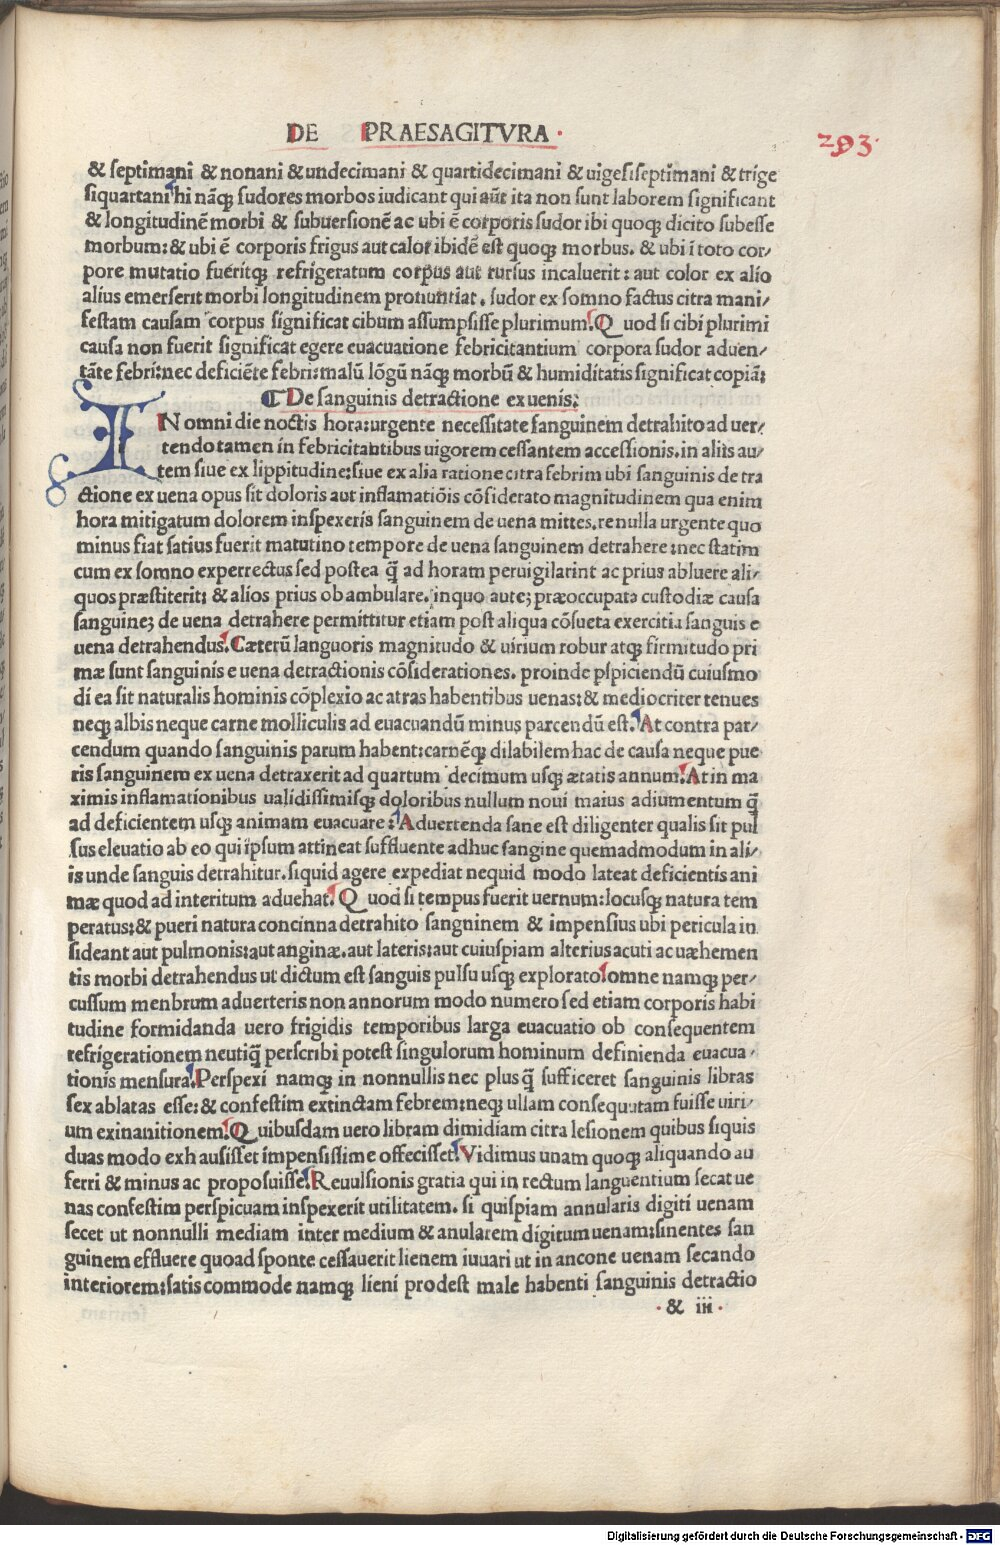 DE PRAESAGITVRA ·
293·
& septimani & nonani & undecimani & quartidecimani & uigesiseptimani & trige
siquartani hi nãq; sudores morbos iudicant qui aũt ita non sunt laborem significant
& longitudinẽ morbi & subuersionẽ ac ubi ẽ corporis sudor ibi quoq; dicito subesse
morbum: & ubi ẽ corporis frigus aut calor ibidẽ est quoq; morbus. & ubi ĩ toto cor/
pore mutatio fuẽritq; refrigeratum corpus aut rursus incaluerit: aut color ex alio
alius emerserit morbi longitudinem pronuntiat. sudor ex somno factus citra mani/
festam causam corpus significat cibum assumpsisse plurimum. Quod si cibi plurimi
causa non fuerit significat egere euacuatione febricitantium corpora sudor aduen/
tãte febri: nec deficiẽte febri: malũ lõgũ nãq; morbũ & humiditatis significat copiã:
De sanguinis detractione ex uenis:
IN omni die noctis hora: urgente necessitate sanguinem detrahito aduer/
tendo tamen in febricitantibus uigorem cessantem accessionis. in aliis au/
tem siue ex lippitudine: siue ex alia ratione citra febrim ubi sanguinis detra
ctione ex uena opus sit doloris aut inflamatiõis cõsiderato magnitudinem qua enim
hora mitigatum dolorem inspexeris sanguinem de uena mittes. re nulla urgente quo
minus fiat satius fuerit matutino tempore de uena sanguinem detrahere: nec statim
cum ex somno experrectus sed postea q̃ ad horam peruigilarint ac prius abluere ali/
quos præstiterit: & alios prius obambulare. in quo autẽ; præoccupata custodiæ causa
sanguinẽ; de uena detrahere permittitur etiam post aliqua cõsueta exercitia sanguis e
uena detrahendus. Cæterũ languoris magnitudo & uirium robur atq; firmitudo pri
mæ sunt sanguinis e uena detractionis cõsiderationes. proinde pspiciendũ cuiusmo
di ea sit naturalis hominis cõplexio ac atras habentibus uenas: & mediocriter tenues
neq; albis neque carne molliculis ad euacuandũ minus parcendũ est. At contra par/
cendum quando sanguinis parum habent: carnẽq; dilabilem hac de causa neque pue
ris sanguinem ex uena detraxerit ad quartum decimum usq; ætatis annum. At in ma
ximis inflamationibus ualidissimisq; doloribus nullum noui maius adiumentum q̃
ad deficientem usq; animam euacuare: Aduertenda sane est diligenter qualis sit pul
sus eleuatio ab eo qui ipsum attineat suffluente adhuc sangine quemadmodum in ali/
is unde sanguis detrahitur. siquid agere expediat nequid modo lateat deficientis ani
mæ quod ad interitum aduehat. Quod si tempus fuerit uernum: locusq; natura tem
peratus: & pueri natura concinna detrahito sanguinem & impensius ubi pericula in
sideant aut pulmonis: aut anginæ. aut lateris: aut cuiuspiam alterius acuti ac uæhemen
tis morbi detrahendus ut dictum est sanguis pulsu usq; explorato omne namq; per/
cussum menbrum aduerteris non annorum modo numero sed etiam corporis habi
tudine formidanda uero frigidis temporibus larga euacuatio ob consequentem
refrigerationem neutiq̃ perscribi potest singulorum hominum definienda euacua/
tionis mensura. Perspexi namq; in nonnullis nec plusq̃ sufficeret sanguinis libras
sex ablatas esse: & confestim extinctam febrem: neq; ullam consequutam fuisse uiri/
um exinanitionem. Quibusdam uero libram dimidiam citra lesionem quibus siquis
duas modo exhausisset impensissime offecisset. Vidimus unam quoq; aliquando au
ferri & minus ac proposuisse. Reuulsionis gratia qui in rectum languentium secat ue
nas confestim perspicuam inspexerit utilitatem. si quispiam annularis digiti uenam
secet ut nonnulli mediam inter medium & anularem digitum uenam: sinentes san
guinem effluere quoad sponte cessauerit lienem iuuari ut in ancone uenam secando
interiorem: satis commode namq; lieni prodest male habenti sanguinis detractio
· & iii ·
Digitalisierung gefördert durch die Deutsche Forschungsgemeinschaft - DFG